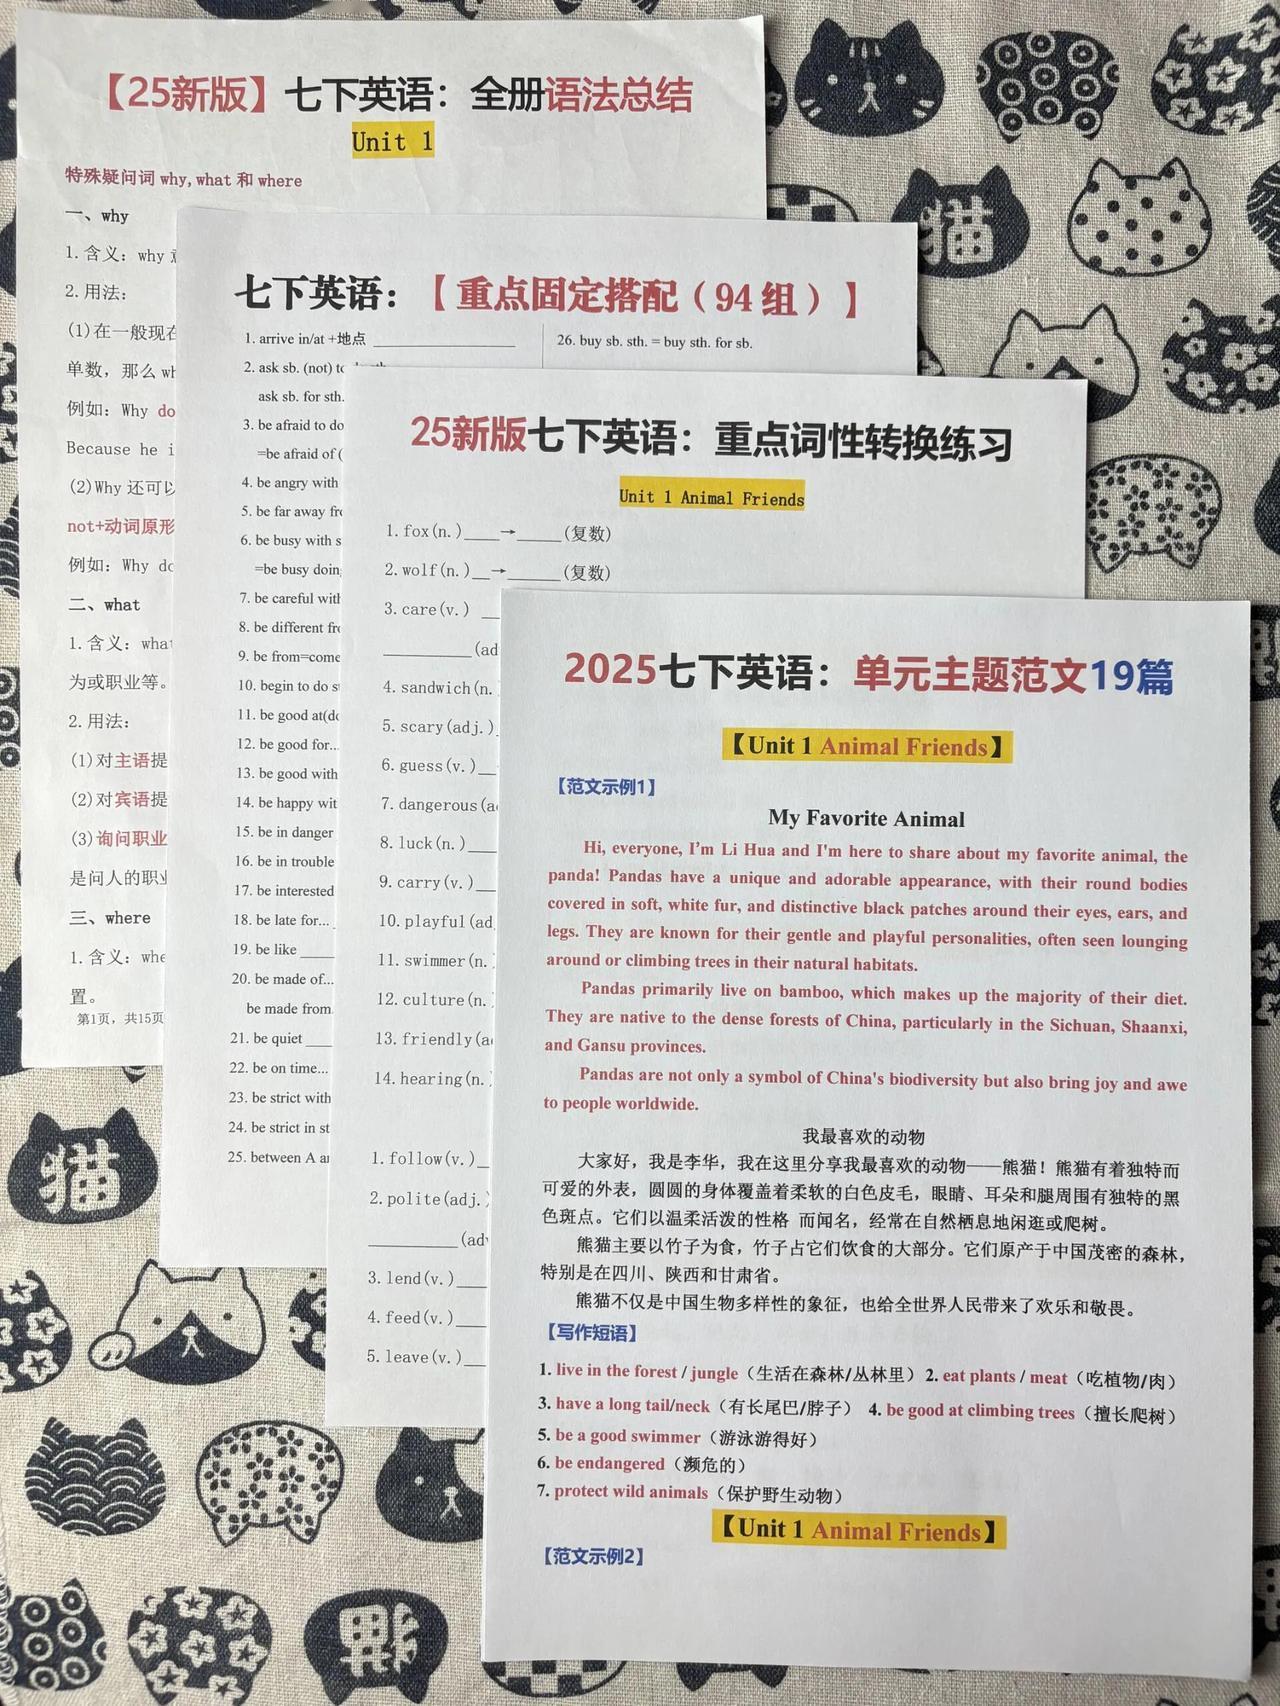 【25新版】七下英语：全册语法总结
Unit 1
特殊疑问词 why, what 和 where
一、why
1. 含义：why
2. 用法：
(1)在一般现在
单数，那么 wh
例如：Why do
Because he i
(2)Why 还可以
not+动词原形
例如：Why do
二、what
1. 含义：what
为或职业等。
2. 用法：
(1)对主语提
(2)对宾语提
(3)询问职业
是问人的职业
三、where
1. 含义：whe
置。
第1页，共15页
七下英语：【重点固定搭配（94组）】
1. arrive in/at +地点
2. ask sb. (not) to
ask sb. for sth.
3. be afraid to do
=be afraid of (
4. be angry with
5. be far away fro
6. be busy with s
=be busy doin
7. be careful with
8. be different fro
9. be from=come
10. begin to do s
11. be good at(do
12. be good for...
13. be good with
14. be happy wit
15. be in danger
16. be in trouble
17. be interested
18. be late for...
19. be like
20. be made of...
be made from
21. be quiet
22. be on time...
23. be strict with
24. be strict in st
25. between A an
26. buy sb. sth. = buy sth. for sb.
25新版七下英语：重点词性转换练习
Unit 1 Animal Friends
1. fox(n.)____→_____(复数)
2. wolf(n.)__→______(复数)
3. care(v.)
__________(ad
4. sandwich(n.
5. scary(adj.)
6. guess(v.)
7. dangerous(a
8. luck(n.)
9. carry(v.)
10. playful(ad
11. swimmer(n.
12. culture(n.
13. friendly(a
14. hearing(n.
1. follow(v.)
2. polite(adj.
__________(adv
3. lend(v.)
4. feed(v.)
5. leave(v.)
2025七下英语：单元主题范文19篇
【Unit 1 Animal Friends】
【范文示例1】
My Favorite Animal
Hi, everyone, I'm Li Hua and I'm here to share about my favorite animal, the
panda! Pandas have a unique and adorable appearance, with their round bodies
covered in soft, white fur, and distinctive black patches around their eyes, ears, and
legs. They are known for their gentle and playful personalities, often seen lounging
around or climbing trees in their natural habitats.
Pandas primarily live on bamboo, which makes up the majority of their diet.
They are native to the dense forests of China, particularly in the Sichuan, Shaanxi,
and Gansu provinces.
Pandas are not only a symbol of China's biodiversity but also bring joy and awe
to people worldwide.
我最喜欢的动物
大家好，我是李华，我在这里分享我最喜欢的动物——熊猫！熊猫有着独特而
可爱的外表，圆圆的身体覆盖着柔软的白色皮毛，眼睛、耳朵和腿周围有独特的黑
色斑点。它们以温柔活泼的性格 而闻名，经常在自然栖息地闲逛或爬树。
熊猫主要以竹子为食，竹子占它们饮食的大部分。它们原产于中国茂密的森林，
特别是在四川、陕西和甘肃省。
熊猫不仅是中国生物多样性的象征，也给全世界人民带来了欢乐和敬畏。
【写作短语】
1. live in the forest / jungle（生活在森林/丛林里）2. eat plants / meat（吃植物/肉）
3. have a long tail/neck（有长尾巴/脖子） 4. be good at climbing trees（擅长爬树）
5. be a good swimmer（游泳游得好）
6. be endangered（濒危的）
7. protect wild animals（保护野生动物）
【Unit 1 Animal Friends】
【范文示例2】
猫
猫